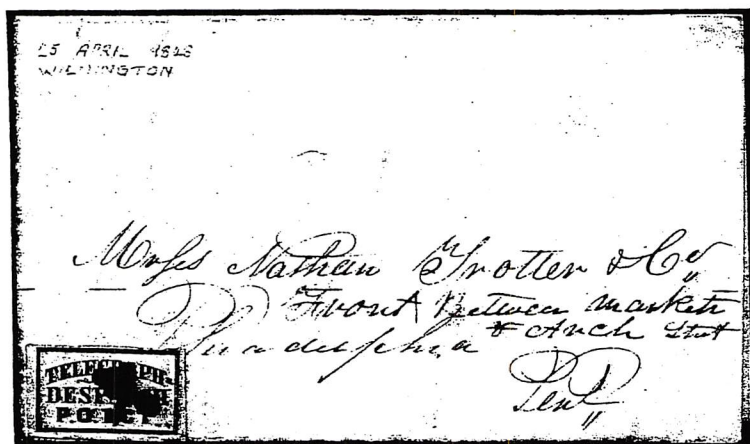 25 APRIL 1848
WILMINGTON
Messs Nathan Trotter & Co
Front Between Market
& Arch Street
Philadelphia
Penl
TELEGRAPH
DESPATCH
P.O.